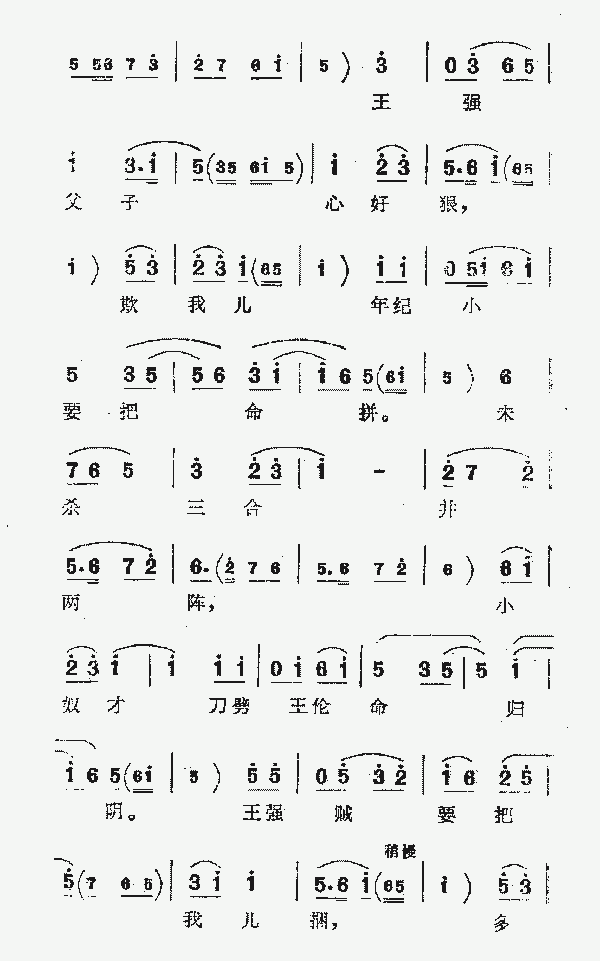 5 56 7 3 | 2 7 6 i | 5 ) 3 | 0 3 6 5 |
王 强
i 3·i | 5 (35 6i 5) | i 2 3 | 5·6 i (65 |
父 子 心 好 狠，
i ) 5 3 | 2 3 i (65 | i ) i i | 0 5i 6 i |
欺 我 儿 年纪 小
5 3 5 | 5 6 3 i | i 6 5 (6i | 5 ) 6 |
要 把 命 拼。 未
7 6 5 | 3 2 3 | i - | 2 7 2 |
杀 三 合 并
5·6 7 2 | 6· (2 7 6 | 5·6 7 2 | 6 ) 6 i |
两 阵， 小
2 3 i | i i i | 0 i 6 i | 5 3 5 | 5 i |
奴 才 刀劈 王伦 命 归
i 6 5 (6i | 5 ) 5 5 | 0 5 3 2 | i 6 2 5 |
阴。 王强 贼 要 把
稍慢
5 (7 6 5) | 3 i i | 5·6 i (65 | i ) 5 3 |
我 儿 捆， 多